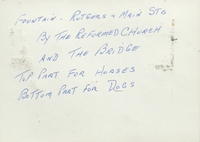 FOUNTAIN - RUTGERS & MAIN STS
BY THE REFORMED CHURCH
AND THE BRIDGE
TOP PART FOR HORSES
BOTTOM PART FOR DOGS